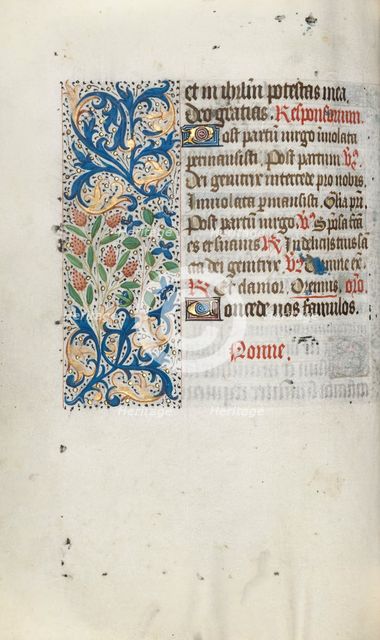 et in ihrl'm potestas mea.
deo gratias. Responsorium
Post partū uirgo īuiolata
permansisti. Post partum V̷
Dei genitrix intercede pro nobis.
Inuiolata p̄mansisti. Glīa pri.
Post partū uirgo V̷ Spōsa facta
es et suauis R̷ In delicijs tuis sā
cta dei genitrix V̷ Domine ex.
R̷ Et clamor. Oremus. oro.
Concede nos famulos.
Nonne.
Heritage
Heritage